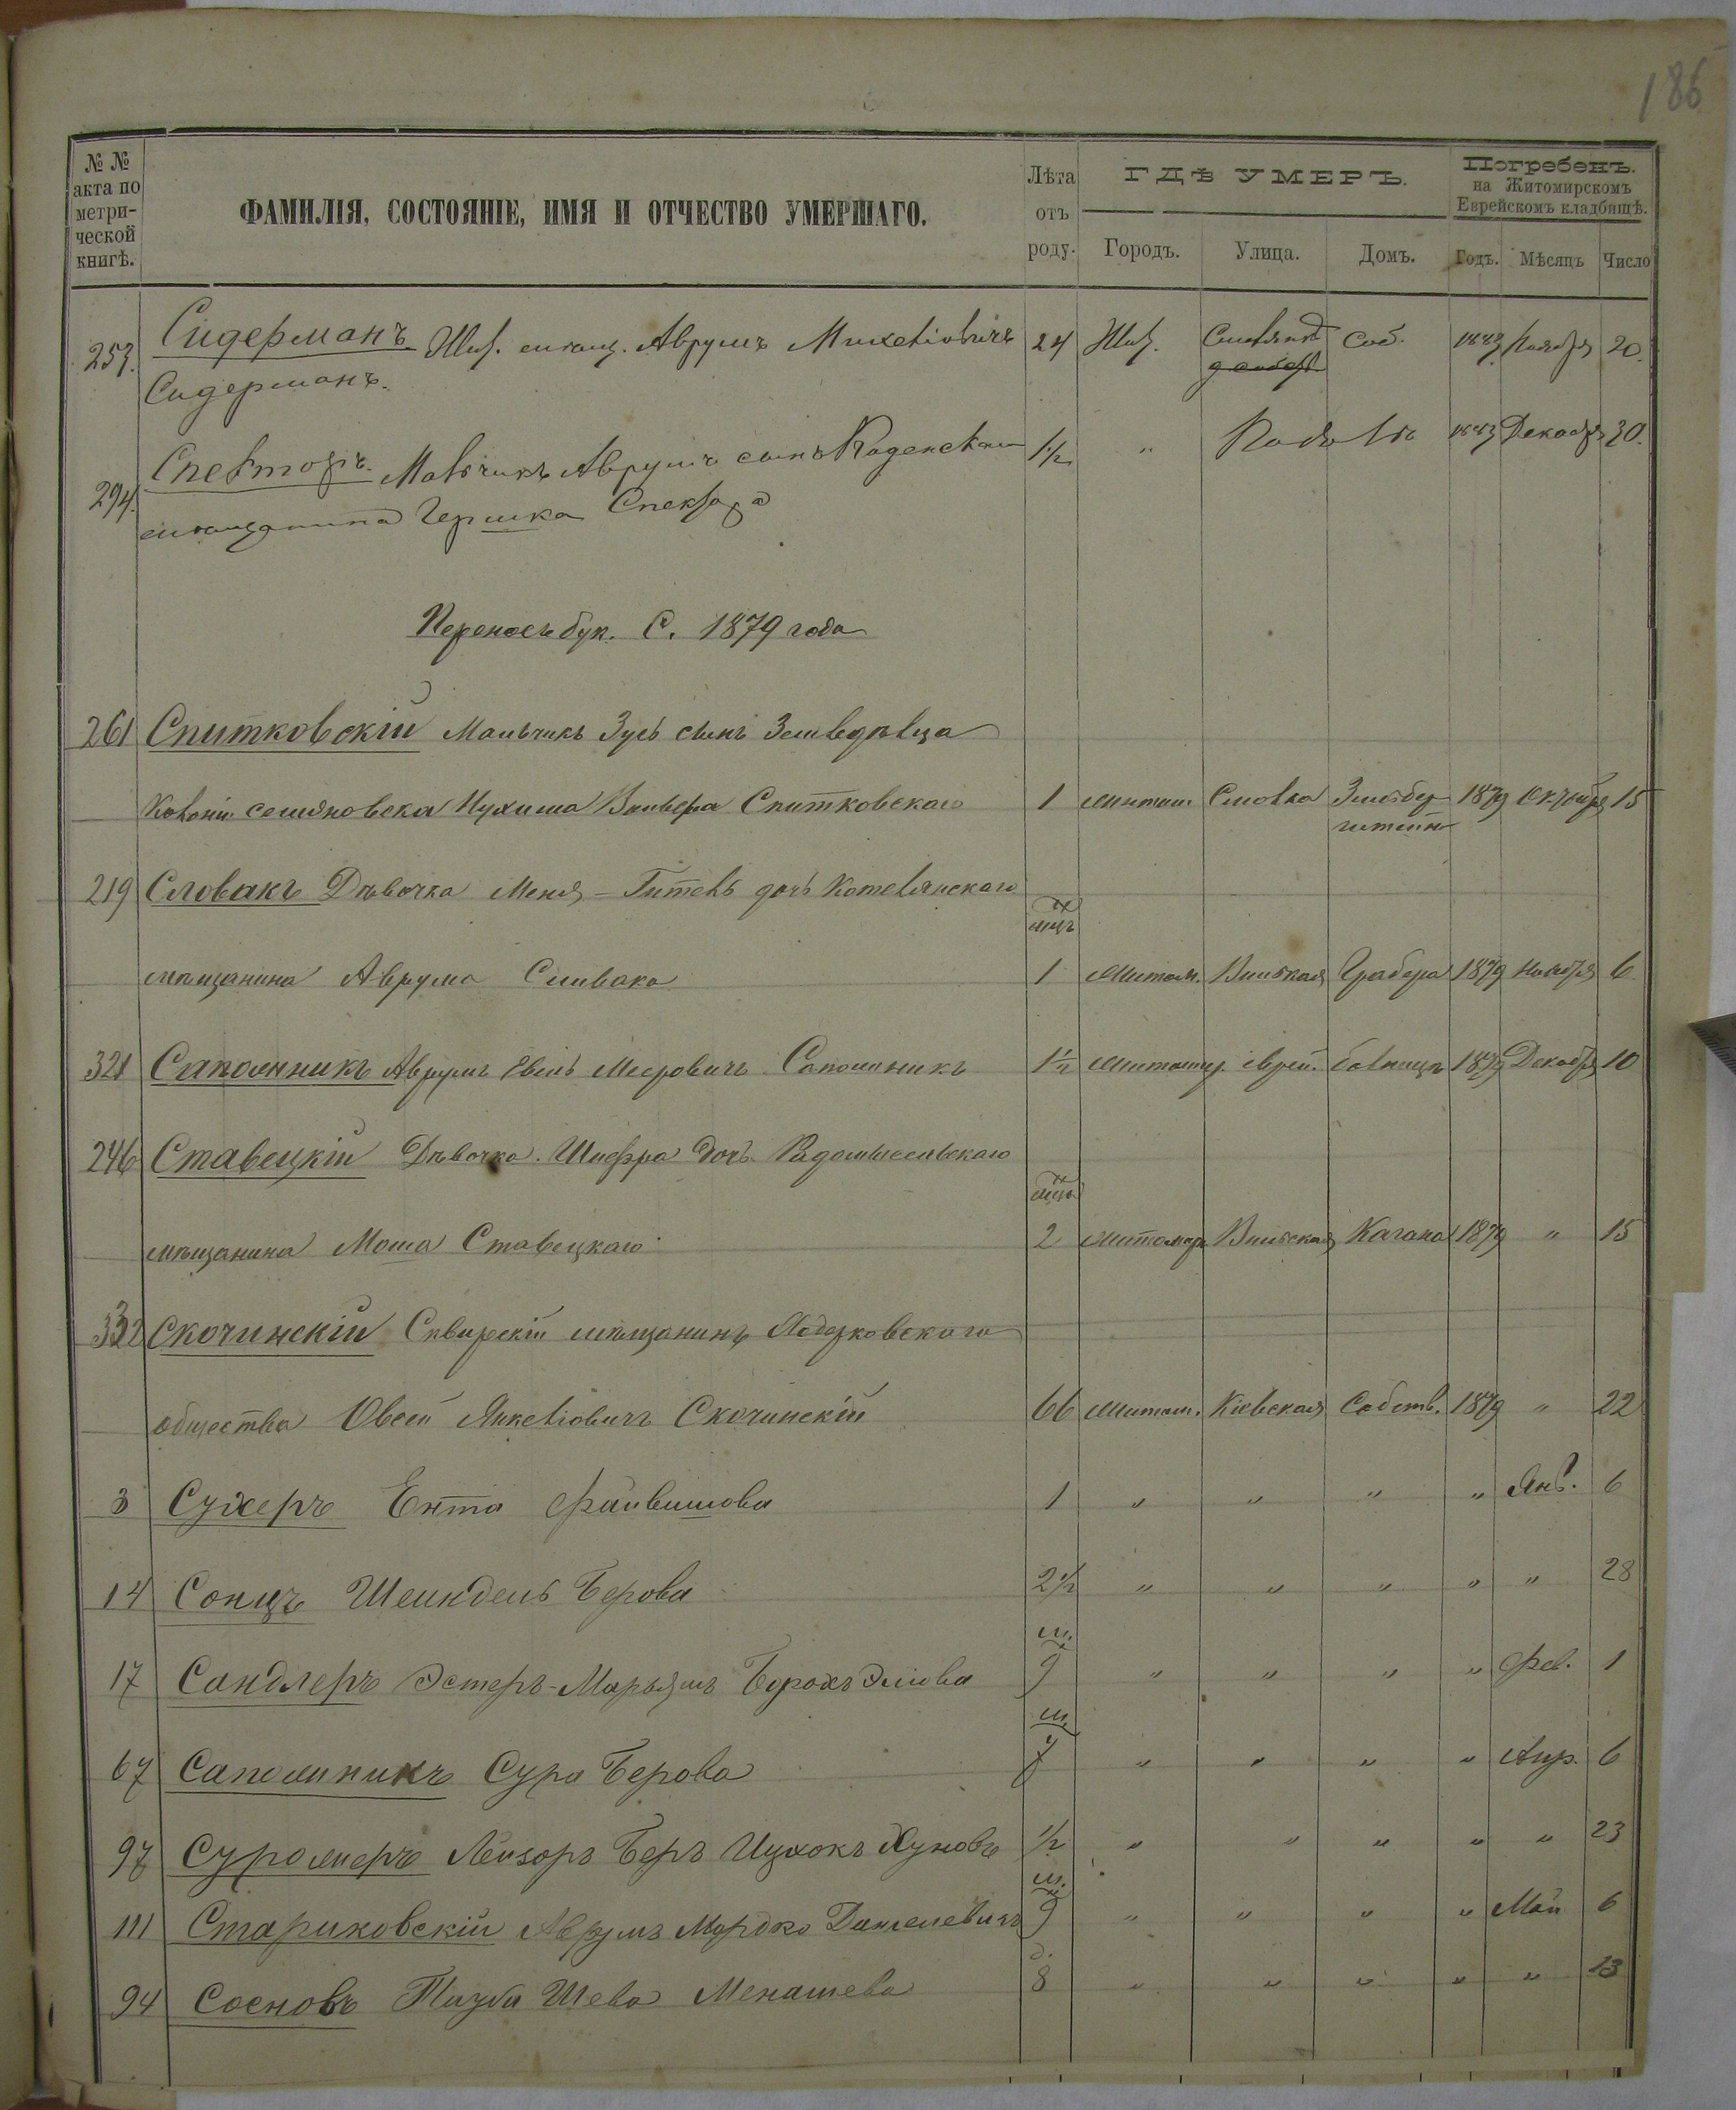 186
№ № акта по метри-ческой книгѣ.
ФАМИЛІЯ, СОСТОЯНІЕ, ИМЯ И ОТЧЕСТВО УМЕРШАГО.
Лѣта отъ роду.
ГДѢ УМЕРЪ.
Погребенъ.
на Житомирскомъ
Еврейскомъ кладбищѣ.
Городъ. Улица. Домъ. Годъ. Мѣсяцъ Число
253. Сидерманъ Жит. мѣщ. Аврумъ 24 Жит. Соб. Ноября 20.
Сидерманъ.
294. Спекторъ. Мальчикъ Аврумъ сынъ 1/2 " Декабря 30.
мѣщанина Гершка Спектора
Переносъ бук. С. 1879 года
261 Спитковскій Мальчикъ Зусь сынъ Земледѣльца
Колоніи Нухима Спитковскаго 1 Житом. 1879 Октября 15
219 Словакъ Дѣвочка Меня-Гитель дочь Котелянскаго
мѣс
мѣщанина Аврума 1 Житом. Вильская Грабера 1879 Ноября 6
321 Сапожникъ Аврумъ Мееровичъ Сапожникъ 1 1/2 Житомир еврей. больница 1879 Декабря 10
246 Ставецкій Дѣвочка. Шифра дочь Радомысельскаго
мѣс
мѣщанина Моша Ставецкаго 2 Житомир Вильская Кагана 1879 " 15
332 Скочинскій Сквирскій мѣщанинъ
общества Овсей Янкеліовичъ Скочинскій 66 Житом. Кіевская Собств. 1879 " 22
3 Сухеръ Ента Файвишова 1 " " " " Янв. 6
14 Сонцъ Шейндель Берова 2 1/2 " " " " " 28
м.
17 Сандлеръ Эстеръ-Марьямъ 9 " " " " Фев. 1
м.
67 Сапожникъ Сура Берова 7 " " " " Апр. 6
97 Лейзоръ Беръ Ицхокъ 1/2 " " " " " 23
м.
111 Стариковскій Аврумъ Мордко 9 " " " " Май 6
д.
94 Сосновъ Шева Менашева 8 " " " " " 13